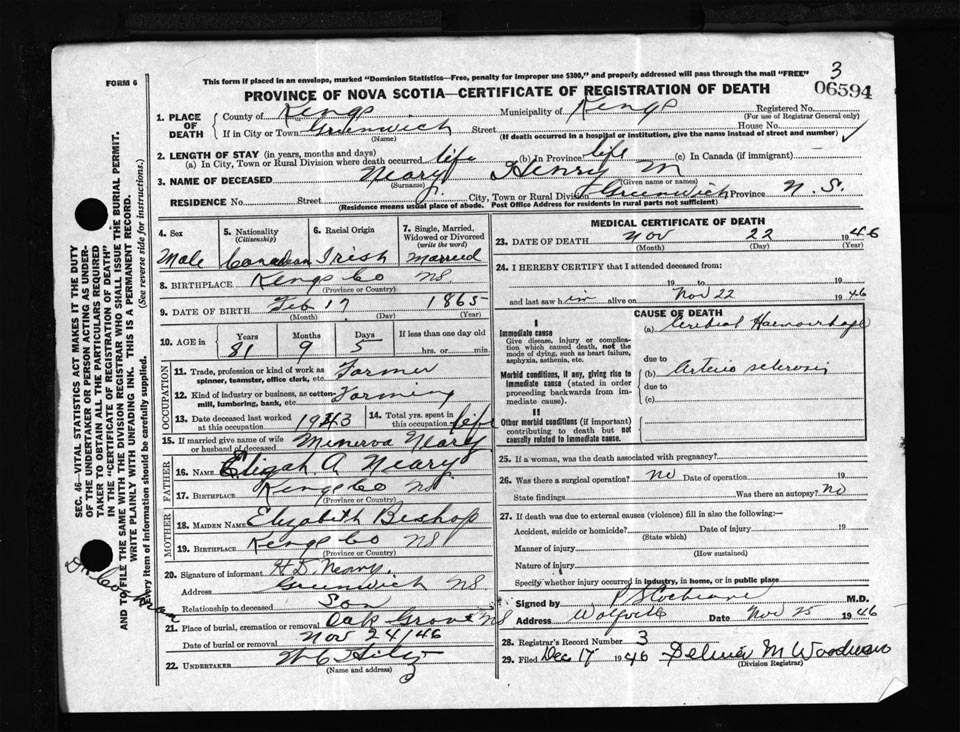 3
FORM 6
This form if placed in an envelope, marked "Dominion Statistics—Free, penalty for improper use $300," and properly addressed will pass through the mail "FREE"
06594
PROVINCE OF NOVA SCOTIA—CERTIFICATE OF REGISTRATION OF DEATH
1. PLACE OF DEATH
County of Kings Municipality of Kings Registered No.
(For use of Registrar General only)
If in City or Town Greenwich Street House No.
(Name) (If death occurred in a hospital or institution, give the name instead of street and number)
2. LENGTH OF STAY (in years, months and days)
(a) In City, Town or Rural Division where death occurred life (b) In Province life (c) In Canada (if immigrant)
3. NAME OF DECEASED Neary Henry M
(Surname) (Given name or names)
RESIDENCE No. Street City, Town or Rural Division Greenwich Province N. S.
(Residence means usual place of abode. Post Office Address for residents in rural parts not sufficient)
4. Sex
Male
5. Nationality
(Citizenship)
Canadian
6. Racial Origin
Irish
7. Single, Married, Widowed or Divorced
(write the word)
Married
8. BIRTHPLACE Kings Co NS.
(Province or Country)
9. DATE OF BIRTH Feb 17 1865
(Month) (Day) (Year)
10. AGE in
Years Months Days If less than one day old
81 9 5 hrs. or min.
OCCUPATION
11. Trade, profession or kind of work as
spinner, teamster, office clerk, etc. Farmer
12. Kind of industry or business, as cotton-
mill, lumbering, bank, etc. Farming
13. Date deceased last worked
at this occupation 1943
14. Total yrs. spent in
this occupation life
15. If married give name of wife
or husband of deceased Minerva Neary
FATHER
16. NAME Elijah A. Neary
17. BIRTHPLACE Kings Co NS
(Province or Country)
MOTHER
18. MAIDEN NAME Elizabeth Bishop
19. BIRTHPLACE Kings Co NS
(Province or Country)
20. Signature of informant H. D. Neary
Address Greenwich NS
Relationship to deceased Son
21. Place of burial, cremation or removal Oak Grove NS
Date of burial or removal Nov 24/46
22. UNDERTAKER
(Name and address)
MEDICAL CERTIFICATE OF DEATH
23. DATE OF DEATH Nov 22 1946
(Month) (Day) (Year)
24. I HEREBY CERTIFY that I attended deceased from:
19 to 19
and last saw him alive on Nov 22 1946
CAUSE OF DEATH
I
Immediate cause
Give disease, injury or complica-
tion which caused death, not the
mode of dying, such as heart failure,
asphyxia, asthenia, etc.
(a) Cerebral Haemorrhage
due to
Morbid conditions, if any, giving rise to
immediate cause (stated in order
proceeding backwards from im-
mediate cause).
(b) Arterio sclerosis
due to
(c)
II
Other morbid conditions (if important)
contributing to death but not
causally related to immediate cause.
25. If a woman, was the death associated with pregnancy?
26. Was there a surgical operation? No Date of operation 19
State findings Was there an autopsy? No
27. If death was due to external causes (violence) fill in also the following:—
Accident, suicide or homicide? Date of injury 19
(State which)
Manner of injury
(How sustained)
Nature of injury
Specify whether injury occurred in industry, in home, or in public place
Signed by P S Cochrane M.D.
Address Wolfville Date Nov 25 1946
28. Registrar's Record Number 3
29. Filed Dec 17 1946 Delmer M Woodman
(Division Registrar)
SEC. 46—VITAL STATISTICS ACT MAKES IT THE DUTY
OF THE UNDERTAKER OR PERSON ACTING AS UNDER-
TAKER TO OBTAIN ALL THE PARTICULARS REQUIRED
IN THE "CERTIFICATE OF REGISTRATION OF DEATH"
AND TO FILE THE SAME WITH THE DIVISION REGISTRAR WHO SHALL ISSUE THE BURIAL PERMIT.
WRITE PLAINLY WITH UNFADING INK. THIS IS A PERMANENT RECORD.
Every item of information should be carefully supplied. (See reverse side for instructions.)
Dr Cochrane